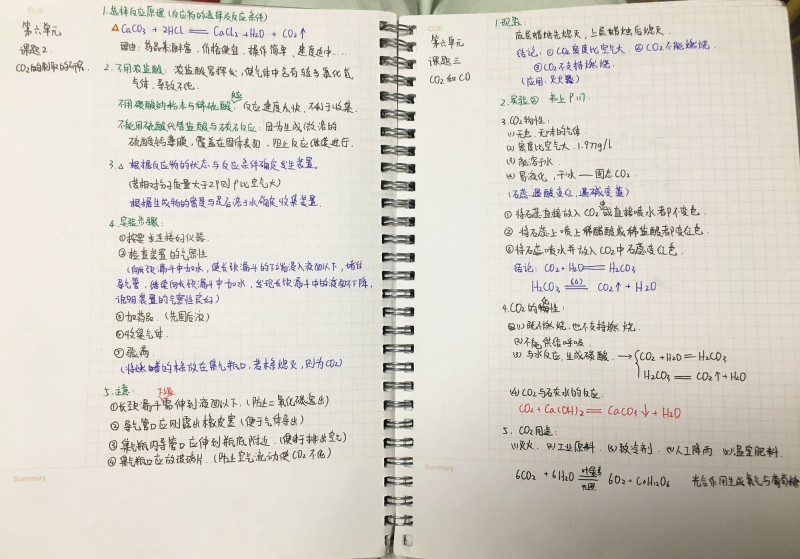 CUE
第六单元
课题2.
CO2的制取的研究.
1.选择反应原理(反应物的选择及反应条件)
△ CaCO3 + 2HCl == CaCl2 + H2O + CO2↑
理由: 药品来源丰富, 价格便宜, 操作简单, 速度适中……
2. 不用浓盐酸: 浓盐酸易挥发, 使气体中含有较多氯化氢
气体, 导致不纯.
不用碳酸钠粉末与稀硫酸: 反应速度太快, 不利于收集.
不能用硫酸代替盐酸与碳石反应: 因为生成微溶的
硫酸钙薄膜, 覆盖在固体表面, 阻止反应继续进行.
3. △ 根据反应物的状态与反应条件确定发生装置.
(若相对分子质量大于29则ρ比空气大)
根据生成物的密度与是否溶于水确定收集装置.
4. 实验步骤:
①按要求连接好仪器.
②检查装置的气密性
(向长颈漏斗中加水, 使长颈漏斗的下端浸入液面以下, 堵住
导气管, 继续向长颈漏斗中加水, 发现长颈漏斗中的液面不下降,
说明装置的气密性良好)
③加药品. (先固后液)
④收集气体.
⑤验满.
(将燃着的木条放在集气瓶口, 若木条熄灭, 则为CO2)
5. 注意: 下端
①长颈漏斗需伸到液面以下. (防止二氧化碳逸出)
② 导气管口应刚露出橡皮塞 (便于气体导出)
③ 集气瓶内导管口应伸到瓶底附近. (便于排出空气)
④ 集气瓶口应放玻璃片. (防止空气流动使CO2不纯)
Summary
CUE
第六单元
课题三
CO2和CO
1.现象:
底层蜡烛先熄灭, 上层蜡烛后熄灭.
结论: ①CO2密度比空气大. ②CO2不能燃烧.
③CO2不支持燃烧.
(应用: 灭火器)
2. 实验② 书上P117.
3. CO2物性:
(1)无色. 无味的气体.
(2)密度比空气大. 1.977g/L
(3)能溶于水
(4)易液化, 干冰——固态CO2.
(石蕊:遇酸变红, 遇碱变蓝)
① 将石蕊直接放入CO2或直接喷水者P不变色.
② 将石蕊上喷上稀醋酸或稀盐酸者P变红色.
③将石蕊喷水并放入CO2中石蕊变红色.
结论: CO2 + H2O == H2CO3
H2CO3 =(△)= CO2↑ + H2O
4. CO2的化性:
(1)既不燃烧, 也不支持燃烧.
(2)不能供给呼吸.
(3)与水反应, 生成碳酸. → {CO2 + H2O == H2CO3
H2CO3 == CO2↑ + H2O
(4) CO2与石灰水的反应.
CO2 + Ca(OH)2 == CaCO3↓ + H2O
5. CO2用途:
(1)灭火. (2)工业原料. (3)致冷剂. (4)人工降雨 (5)温室肥料.
6CO2 + 6H2O =叶绿素/光照= 6O2 + C6H12O6 光合作用生成氧气与葡萄糖
Summary